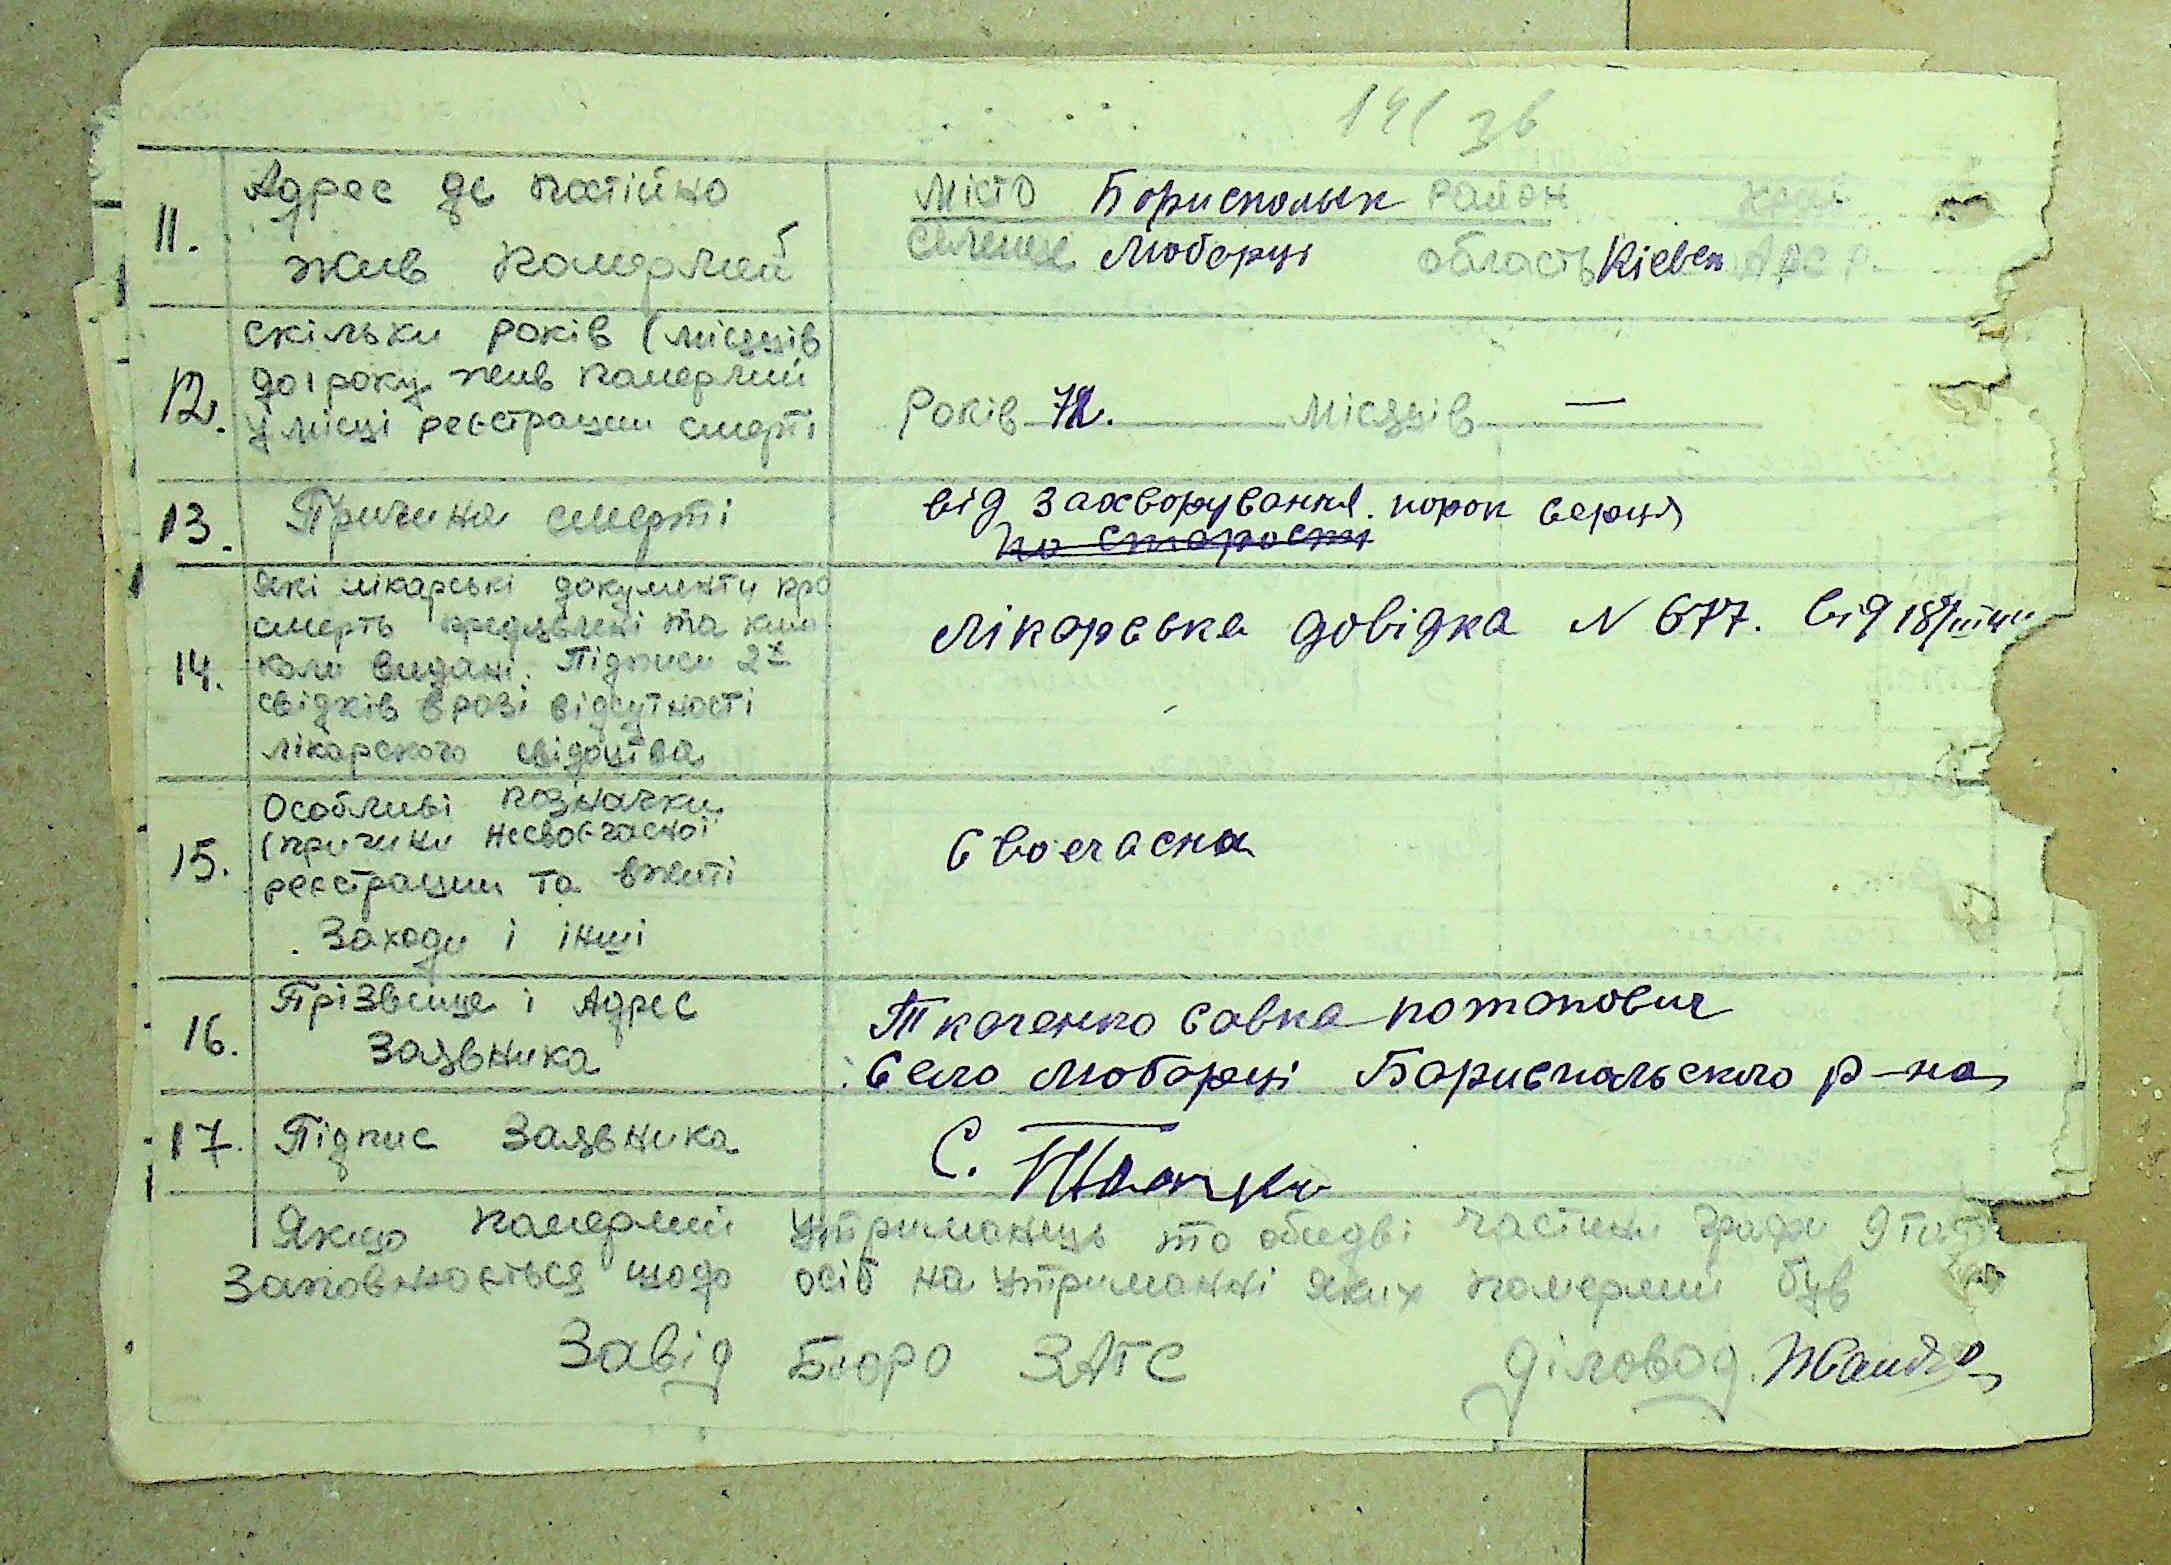 141 зв
11. Адрес де постійно жив померлий
місто Бориспольск район край
селище Любарці область Києвск АРСР.
12. скільки років (місяців до 1 року жив померлий у місці реєстрации смерті
Років 72. Місяців —
13. Причина смерті
від захворування. порок серця
по старости
14. Які лікарські документи про смерть предявлені та ким коли видані. Підписи 2х свідків в разі відсутності лікарского свідоцтва
Лікарська довідка N 677. від 18/III
15. Особливі позначки (причини несвоєчасної реєстрации та вжиті Заходи і інші
Своечасна
16. Прізвище і Адрес Заявника
Ткаченко Савка потапович
Село Любарці Бориспольского р-на
17. Підпис Заявника
С. Ткачен
Якщо померлий утриманець то обидві частини графи 9
Заповнюється щодо осіб на утриманні яких померлий був
Завід Бюро ЗАГС діловод.